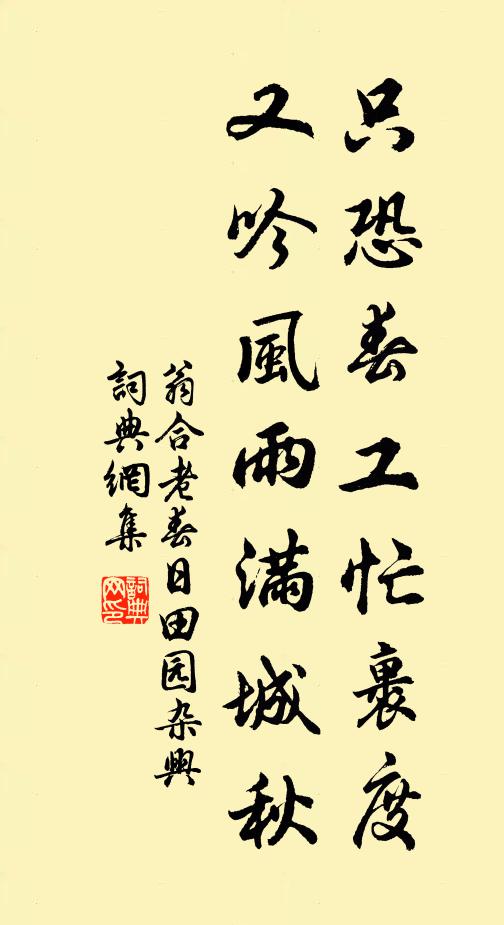 只恐春工忙裏度
又吟風雨滿城秋
翁合老春日田园杂興
詞典網集
詞典網印